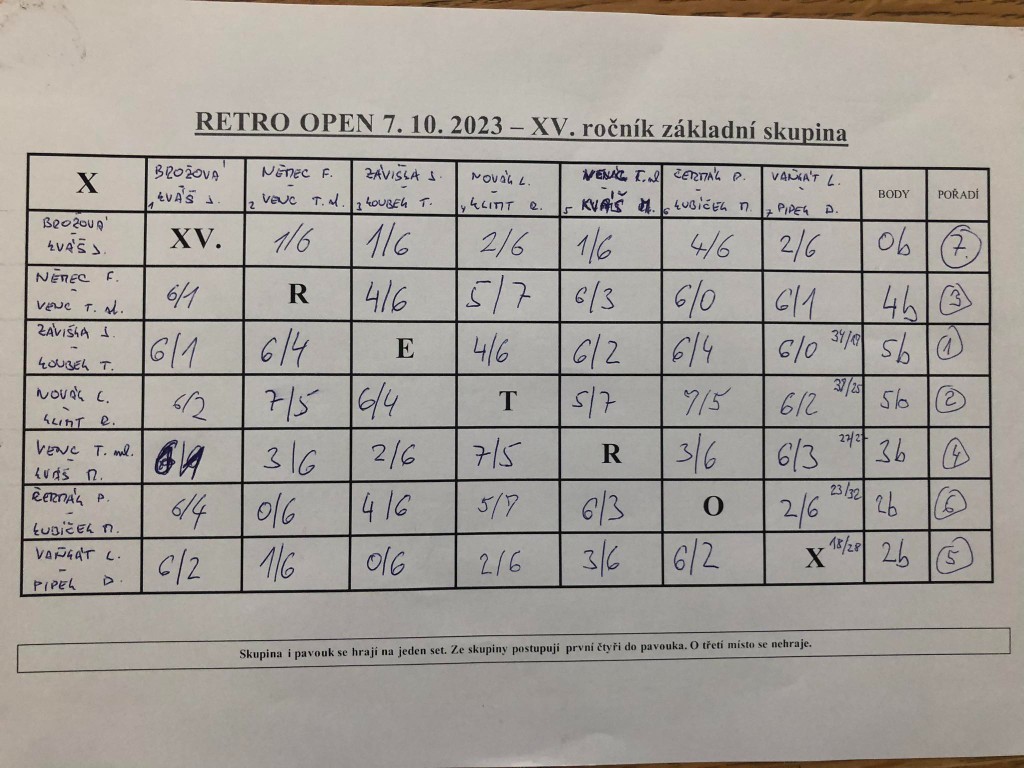 RETRO OPEN 7. 10. 2023 – XV. ročník základní skupina
X BROŽOVÁ - KVÁŠ J. 1 NĚMEC F. - VENC T. ml. 2 ZÁVIŠKA J. - KOUBEK T. 3 NOVÁK L. - KLIMT R. 4 VENC T. ml - KVÁŠ M. 5 ČERMÁK P. - KUBÍČEK M. 6 VAŇKÁT L. - PIPEK D. 7 BODY POŘADÍ
BROŽOVÁ - KVÁŠ J. XV. 1/6 1/6 2/6 1/6 4/6 2/6 0b 7.
NĚMEC F. - VENC T. ml. 6/1 R 4/6 5/7 6/3 6/0 6/1 4b 3
ZÁVIŠKA J. - KOUBEK T. 6/1 6/4 E 4/6 6/2 6/4 6/0 34/17 5b 1
NOVÁK L. - KLIMT R. 6/2 7/5 6/4 T 5/7 7/5 6/2 5b 2
VENC T. ml. - KVÁŠ M. 6/1 3/6 2/6 7/5 R 3/6 6/3 27/27 3b 4
ČERMÁK P. - KUBÍČEK M. 6/4 0/6 4/6 5/7 6/3 O 2/6 23/32 2b 6
VAŇKÁT L. - PIPEK D. 6/2 1/6 0/6 2/6 3/6 6/2 X 18/28 2b 5
Skupina i pavouk se hrají na jeden set. Ze skupiny postupují první čtyři do pavouka. O třetí místo se nehraje.